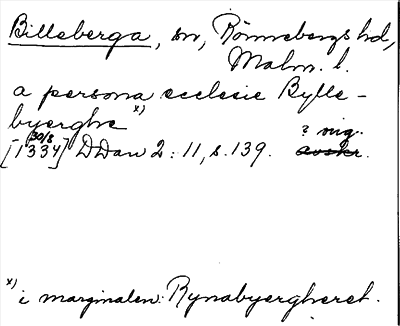 Billeberga, sn, Rönnebergs hd,
Malm. l.
a persona ecclesie Bylle-
byerghe x)
[1334] 30/8 DDan 2: 11, s. 139. ? orig. avskr.
x) i marginalen: Rynabyergheret.